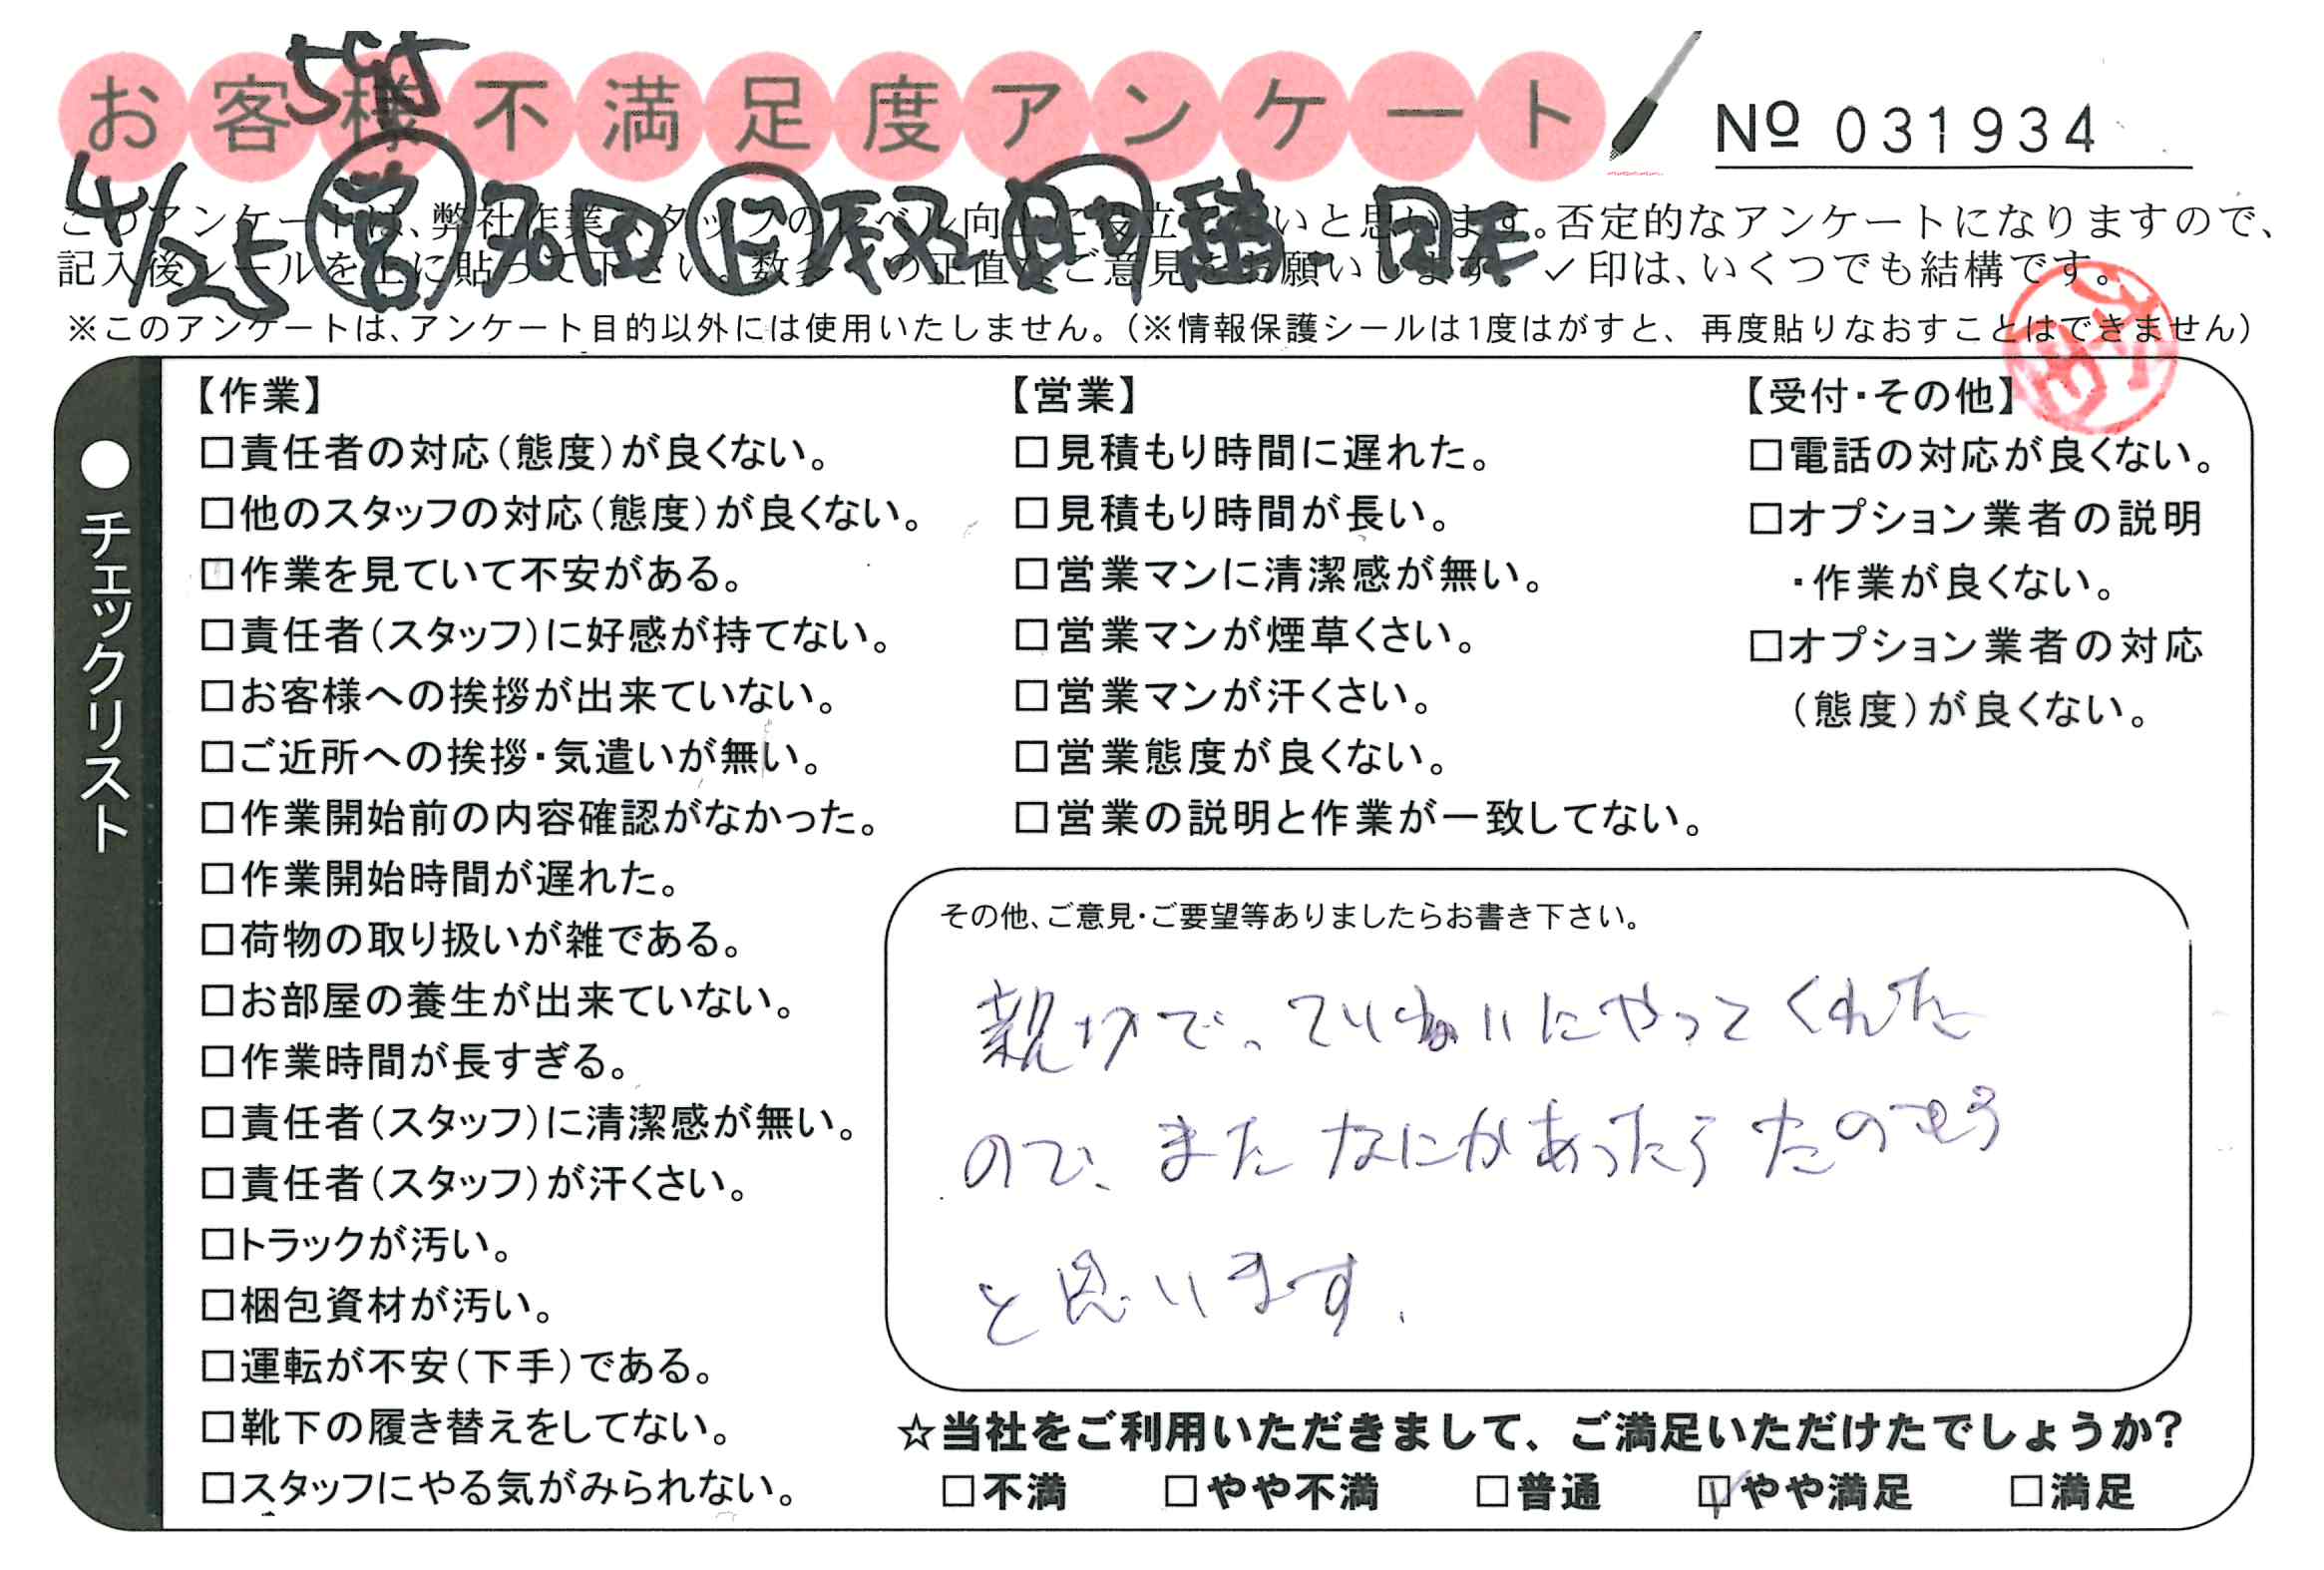 お客様不満足度アンケート
Nº 031934
4/25
このアンケートは、弊社作業スタッフのレベル向上に役立てたいと思います。否定的なアンケートになりますので、
記入後シールを上に貼って下さい。数多くの正直なご意見をお願いします。✓印は、いくつでも結構です。
※このアンケートは、アンケート目的以外には使用いたしません。（※情報保護シールは1度はがすと、再度貼りなおすことはできません）
●チェックリスト
【作業】
□責任者の対応（態度）が良くない。
□他のスタッフの対応（態度）が良くない。
□作業を見ていて不安がある。
□責任者（スタッフ）に好感が持てない。
□お客様への挨拶が出来ていない。
□ご近所への挨拶・気遣いが無い。
□作業開始前の内容確認がなかった。
□作業開始時間が遅れた。
□荷物の取り扱いが雑である。
□お部屋の養生が出来ていない。
□作業時間が長すぎる。
□責任者（スタッフ）に清潔感が無い。
□責任者（スタッフ）が汗くさい。
□トラックが汚い。
□梱包資材が汚い。
□運転が不安（下手）である。
□靴下の履き替えをしてない。
□スタッフにやる気がみられない。
【営業】
□見積もり時間に遅れた。
□見積もり時間が長い。
□営業マンに清潔感が無い。
□営業マンが煙草くさい。
□営業マンが汗くさい。
□営業態度が良くない。
□営業の説明と作業が一致してない。
【受付・その他】
□電話の対応が良くない。
□オプション業者の説明
・作業が良くない。
□オプション業者の対応
（態度）が良くない。
その他、ご意見・ご要望等ありましたらお書き下さい。
親切で、ていねいにやってくれた
ので、またなにかあったらたのもう
と思います。
☆当社をご利用いただきまして、ご満足いただけたでしょうか？
□不満 □やや不満 □普通 ☑やや満足 □満足